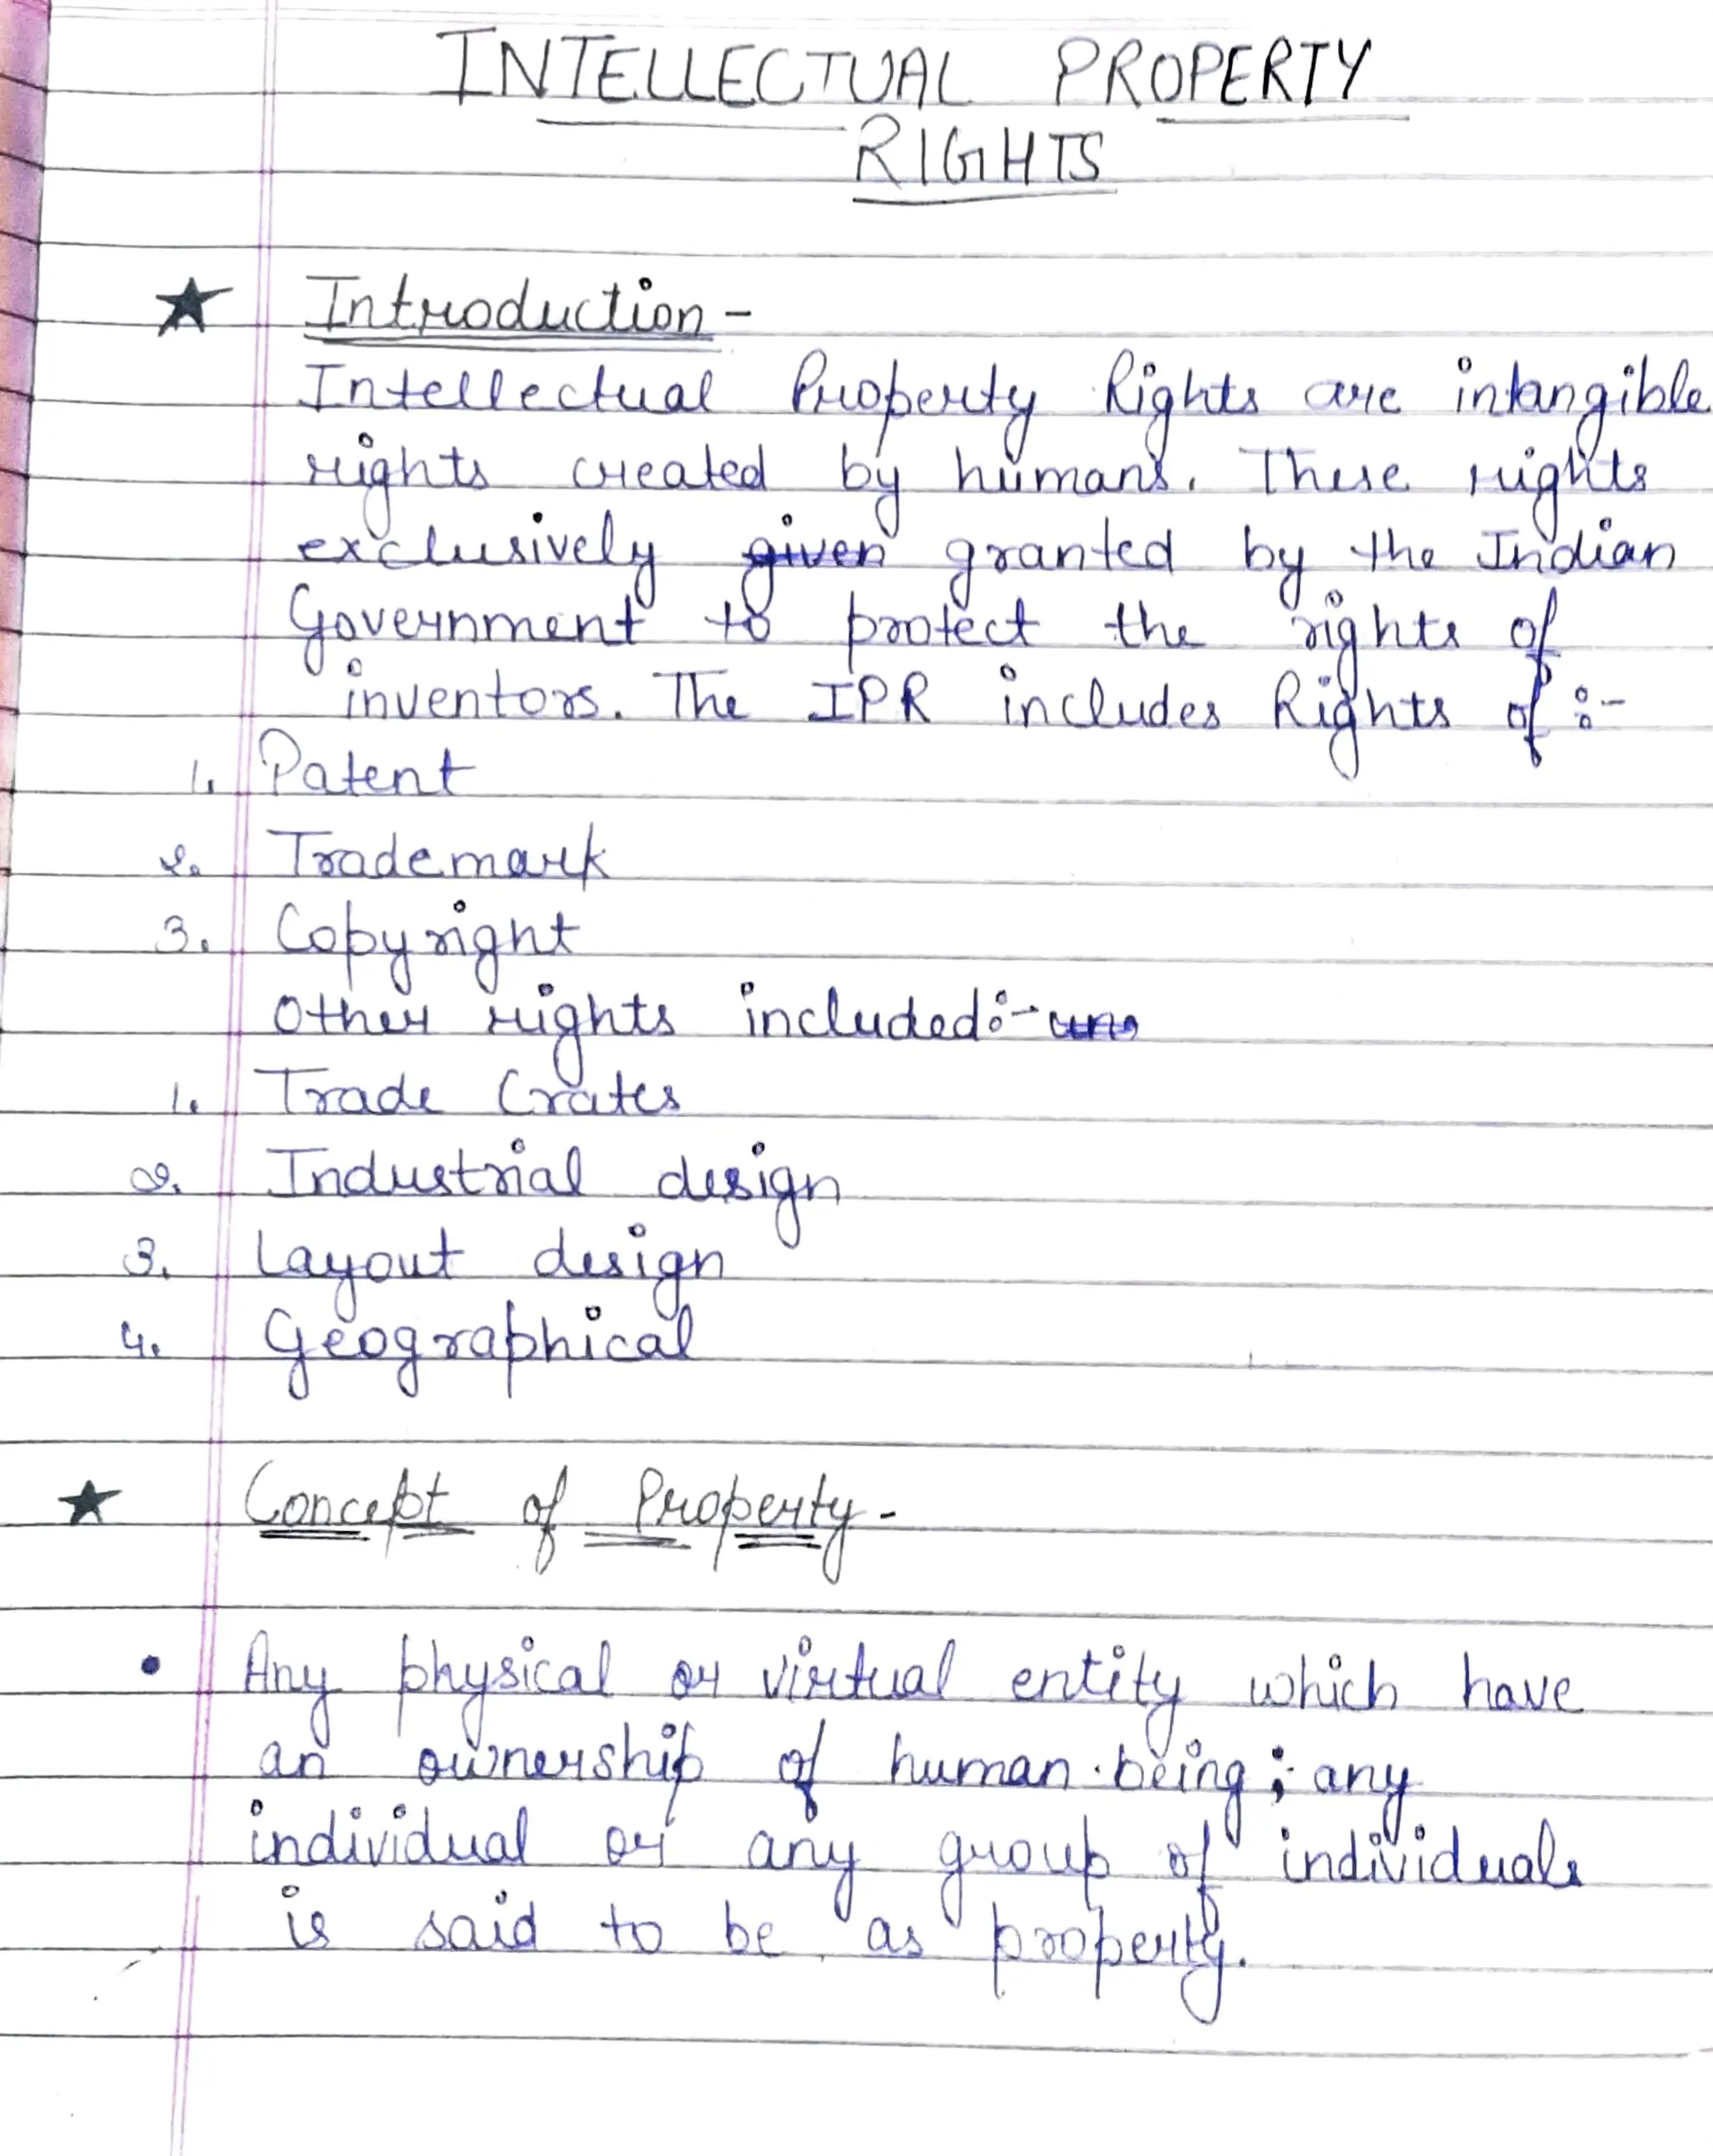 INTELLECTUAL PROPERTY
RIGHTS
★ Introduction -
Intellectual Property Rights are intangible
rights created by humans. These rights
exclusively given granted by the Indian
Government to protect the rights of
inventors. The IPR includes Rights of :-
1. Patent
2. Trademark
3. Copyright
Other rights included:-
1. Trade Crates
2. Industrial design
3. Layout design
4. Geographical
★ Concept of Property -
• Any physical or virtual entity which have
an ownership of human being; any
individual or any group of individuals
is said to be as property.